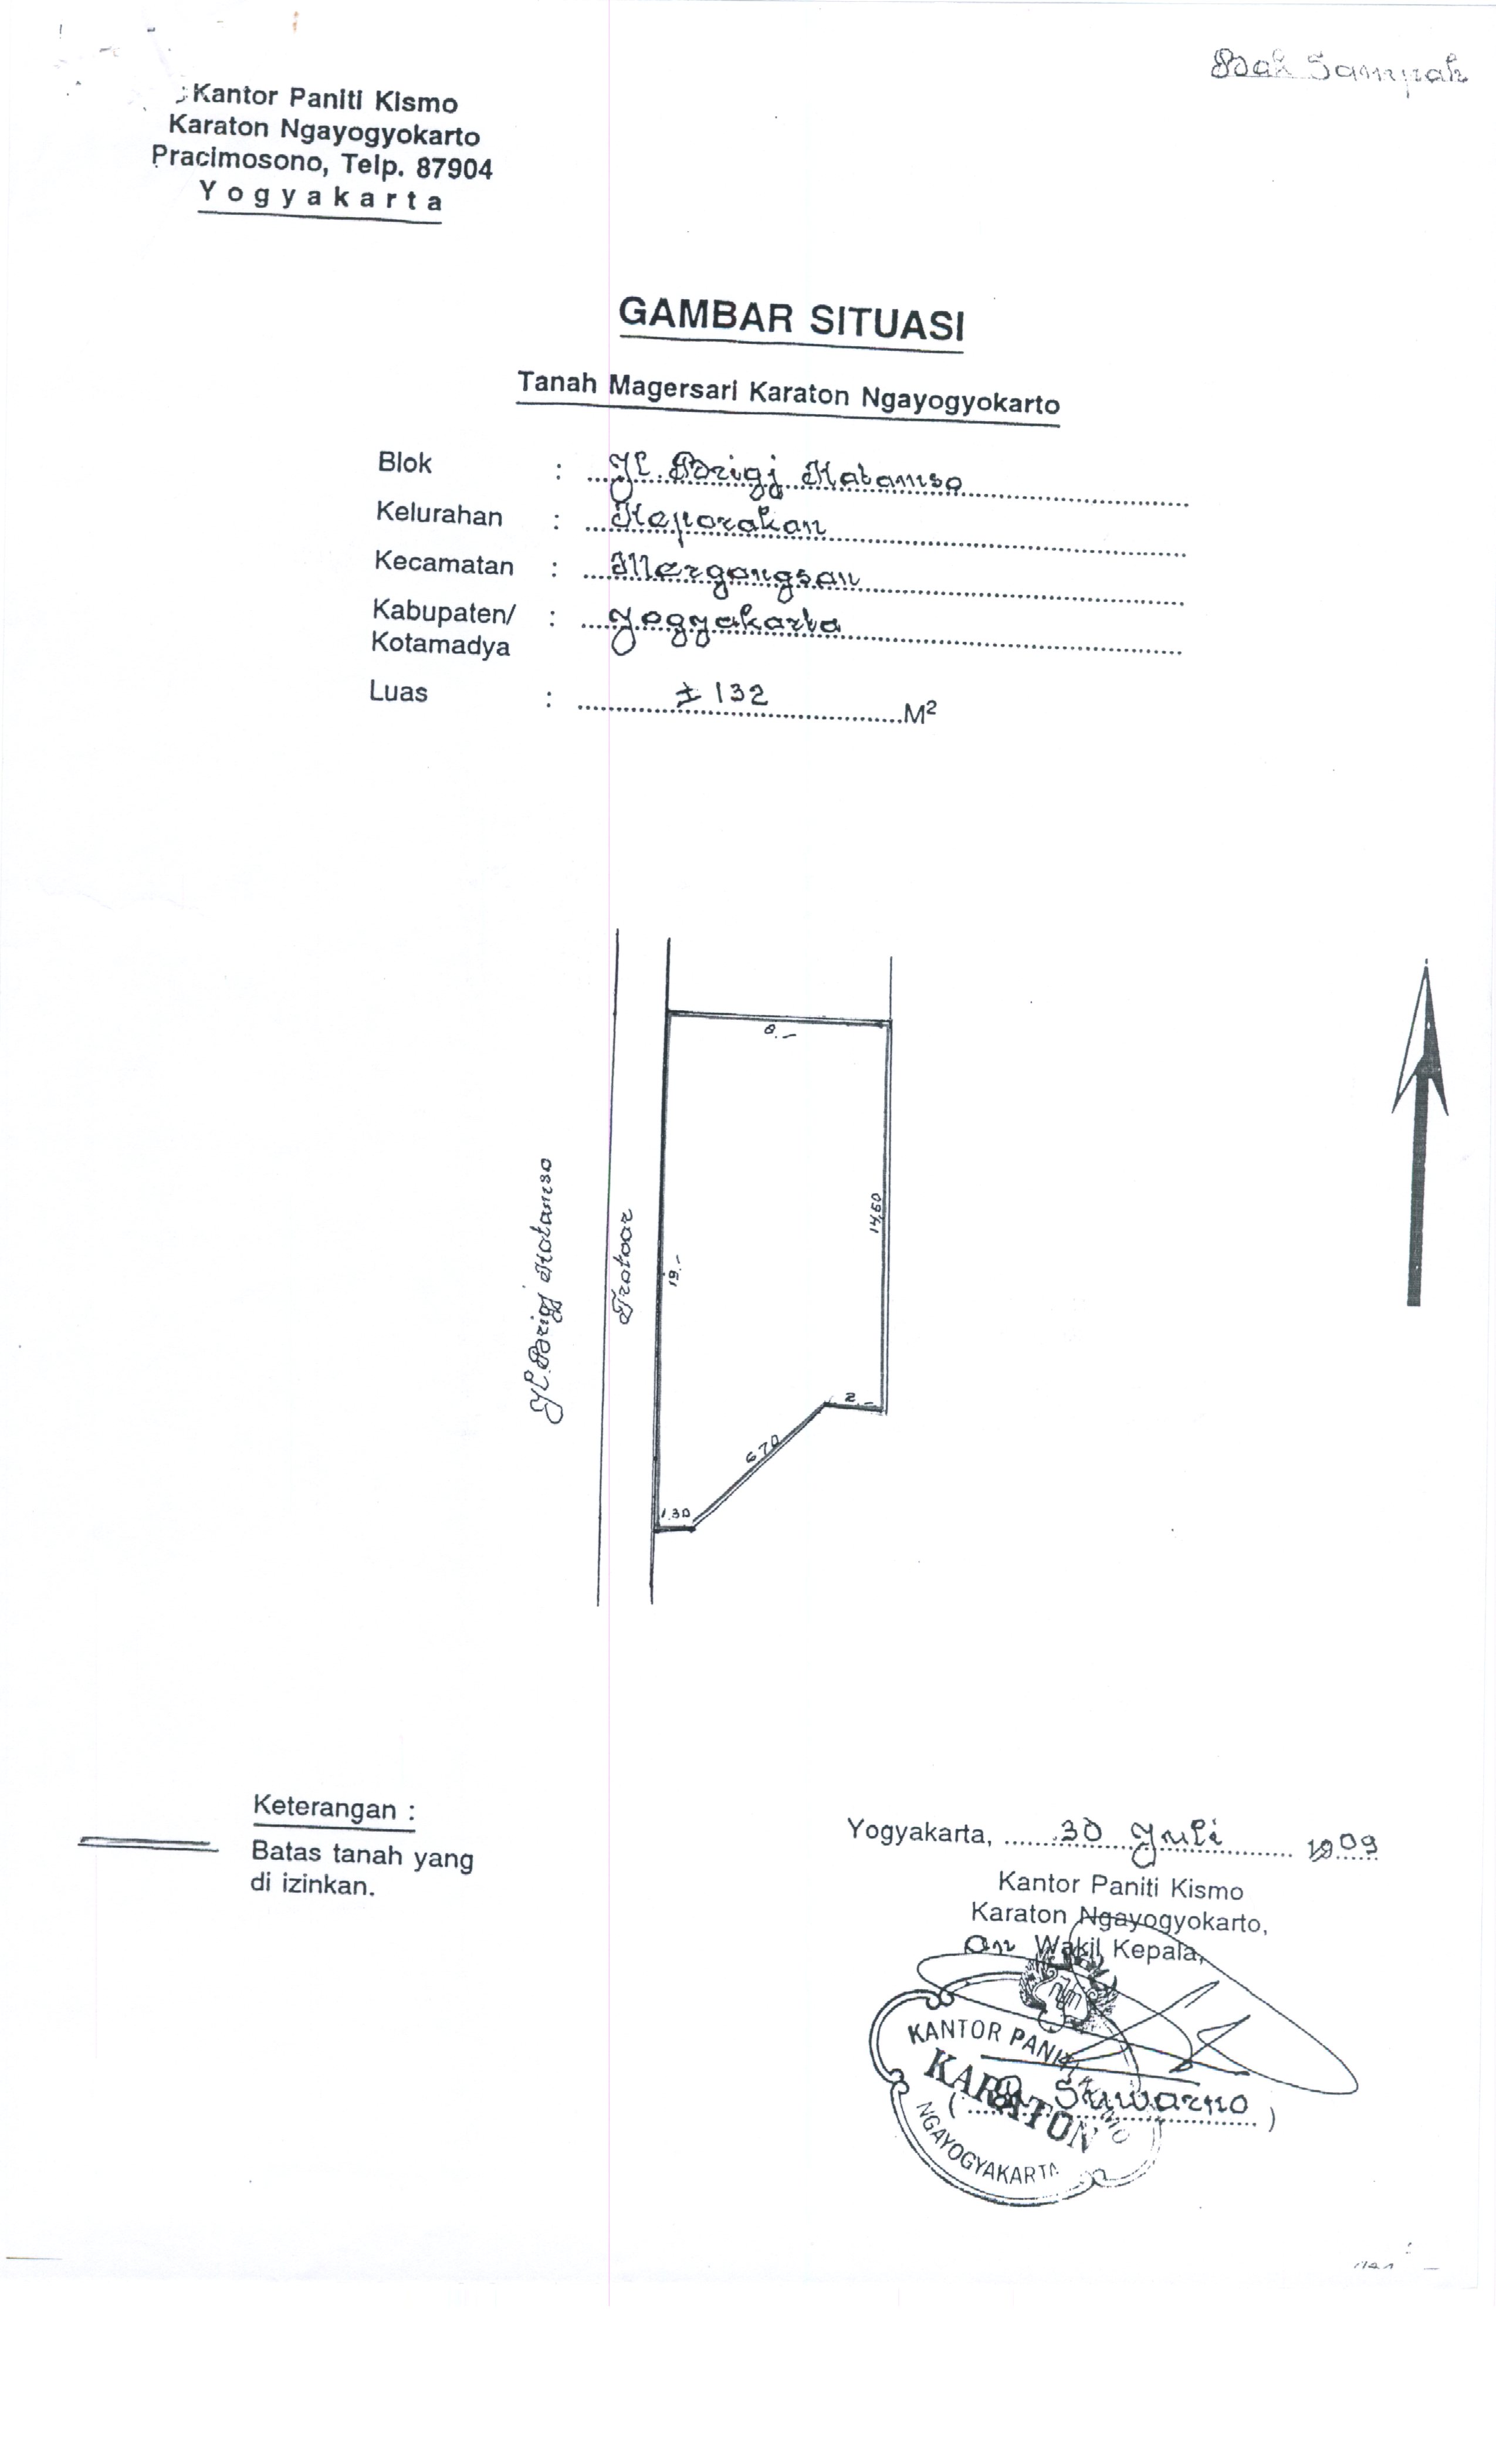 Bak Sampah
Kantor Paniti Kismo
Karaton Ngayogyokarto
Pracimosono, Telp. 87904
Yogyakarta
GAMBAR SITUASI
Tanah Magersari Karaton Ngayogyokarto
Blok : Jl. Brigj Katamso
Kelurahan : Keparakan
Kecamatan : Mergangsan
Kabupaten/ : Yogyakarta
Kotamadya
Luas : ± 132 M²
8.-
14,60
19.-
Trotoar
Jl. Brigj Katamso
2.-
6.70
1.30
Keterangan :
Batas tanah yang
di izinkan.
Yogyakarta, 30 Juli 2009
Kantor Paniti Kismo
Karaton Ngayogyokarto,
An Wakil Kepala,
KANTOR PANITI KISMO
KARATON
NGAYOGYAKARTA
( Suwarno )